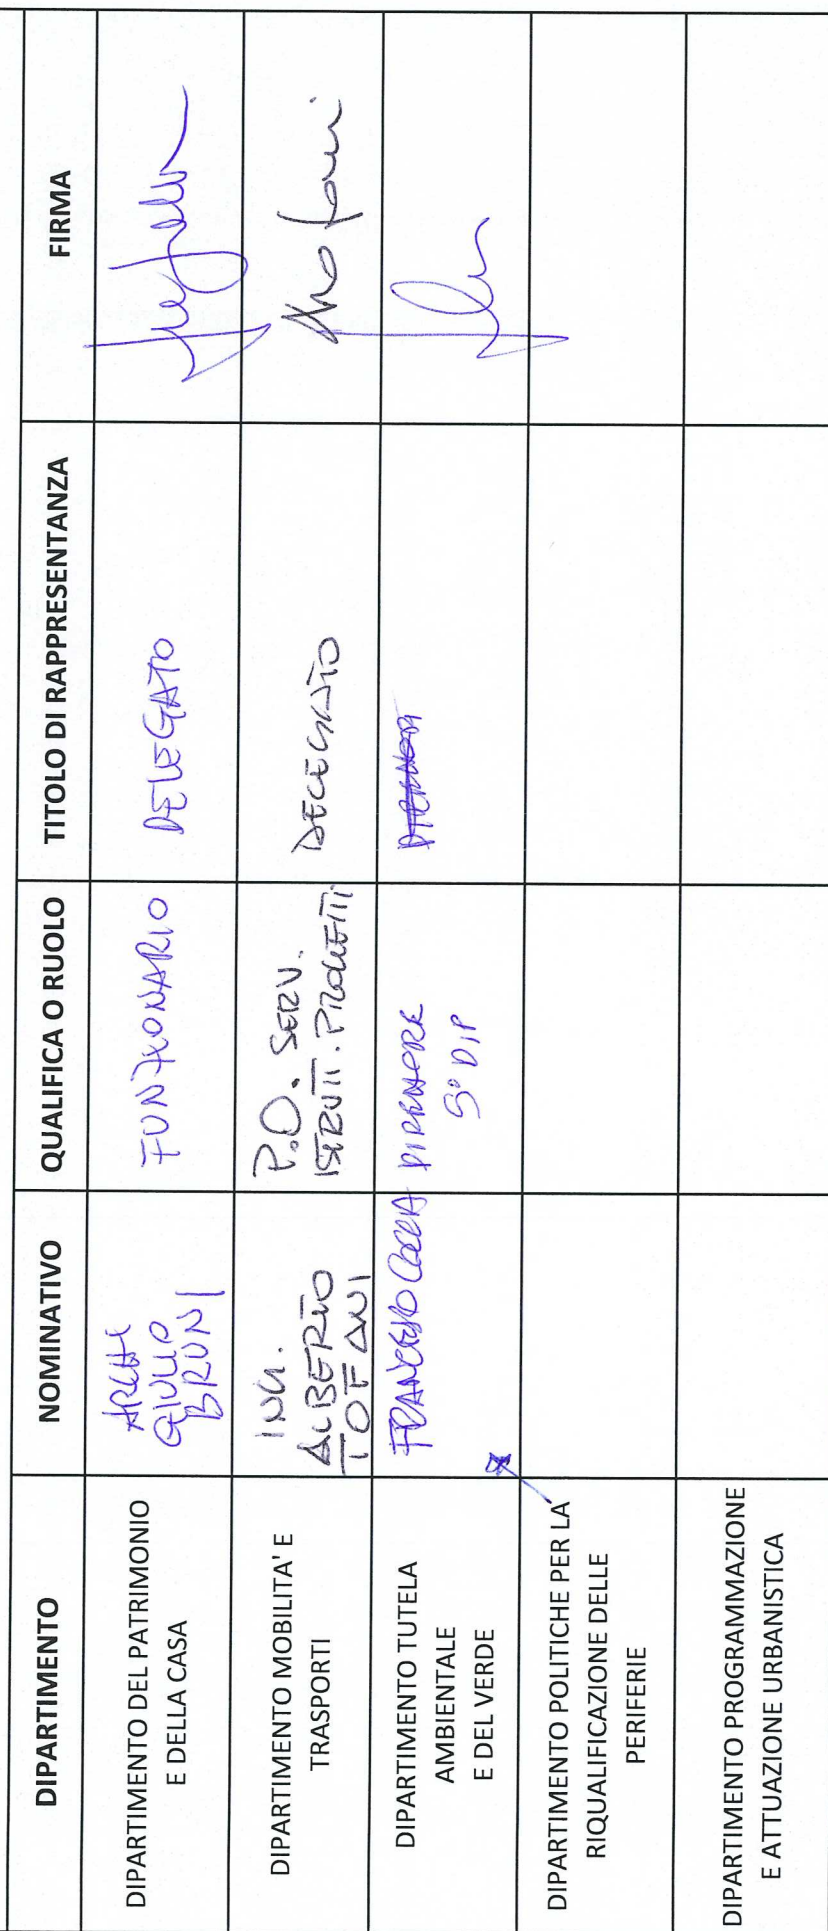 DIPARTIMENTO
NOMINATIVO
QUALIFICA O RUOLO
TITOLO DI RAPPRESENTANZA
FIRMA
DIPARTIMENTO DEL PATRIMONIO
E DELLA CASA
ARCH
GIULIO
BRUNI
FUNZIONARIO
DELEGATO
DIPARTIMENTO MOBILITA' E
TRASPORTI
ING.
ALBERTO
TOFANI
P.O. SERV.
ISTRUTT. PROGETTI
DELEGATO
DIPARTIMENTO TUTELA
AMBIENTALE
E DEL VERDE
FRANCESCO
DIPARTIMENTO POLITICHE PER LA
RIQUALIFICAZIONE DELLE
PERIFERIE
DIPARTIMENTO PROGRAMMAZIONE
E ATTUAZIONE URBANISTICA